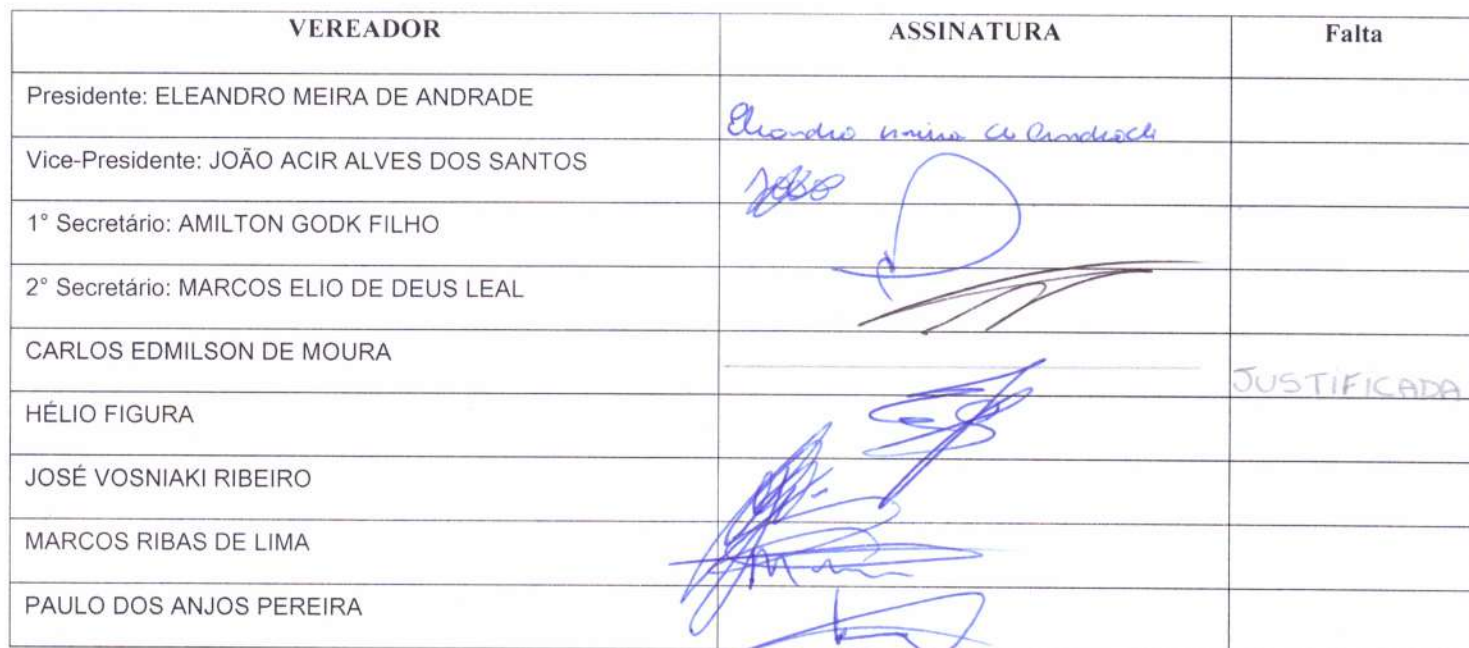 VEREADOR ASSINATURA Falta
Presidente: ELEANDRO MEIRA DE ANDRADE Eleandro Meira de Andrade
Vice-Presidente: JOÃO ACIR ALVES DOS SANTOS
1° Secretário: AMILTON GODK FILHO
2° Secretário: MARCOS ELIO DE DEUS LEAL
CARLOS EDMILSON DE MOURA JUSTIFICADA
HÉLIO FIGURA
JOSÉ VOSNIAKI RIBEIRO
MARCOS RIBAS DE LIMA
PAULO DOS ANJOS PEREIRA